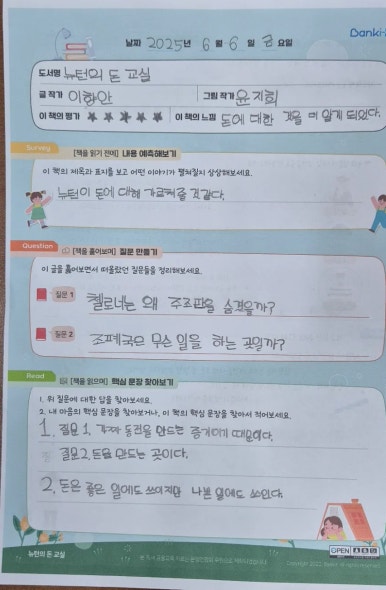 Banki
날짜 2025년 6월 6일 금요일
도서명 뉴턴의 돈 교실
글 작가 이향안 그림 작가 윤지회
이 책의 평가 ★ ★ ★ ★ ★ 이 책의 느낌 돈에 대한 것을 더 알게 되었다.
Survey
[책을 읽기 전에] 내용 예측해보기
이 책의 제목과 표지를 보고 어떤 이야기가 펼쳐질지 상상해보세요.
뉴턴이 돈에 대해 가르쳐줄 것같다.
Question
[책을 훑어보며] 질문 만들기
이 글을 훑어보면서 떠올랐던 질문들을 정리해보세요.
질문 1 첼로너는 왜 주조판을 숨겼을까?
질문 2 조폐국은 무슨 일을 하는 곳일까?
Read
[책을 읽으며] 핵심 문장 찾아보기
1. 위 질문에 대한 답을 찾아보세요.
2. 내 마음의 핵심 문장을 찾아보거나, 이 책의 핵심 문장을 찾아서 적어보세요.
1. 질문 1. 가짜 동전을 만드는 증거이기 때문이다.
질문 2. 돈을 만드는 곳이다.
2. 돈은 좋은 일에도 쓰이지만 나쁜 일에도 쓰인다.
뉴턴의 돈 교실
OPEN